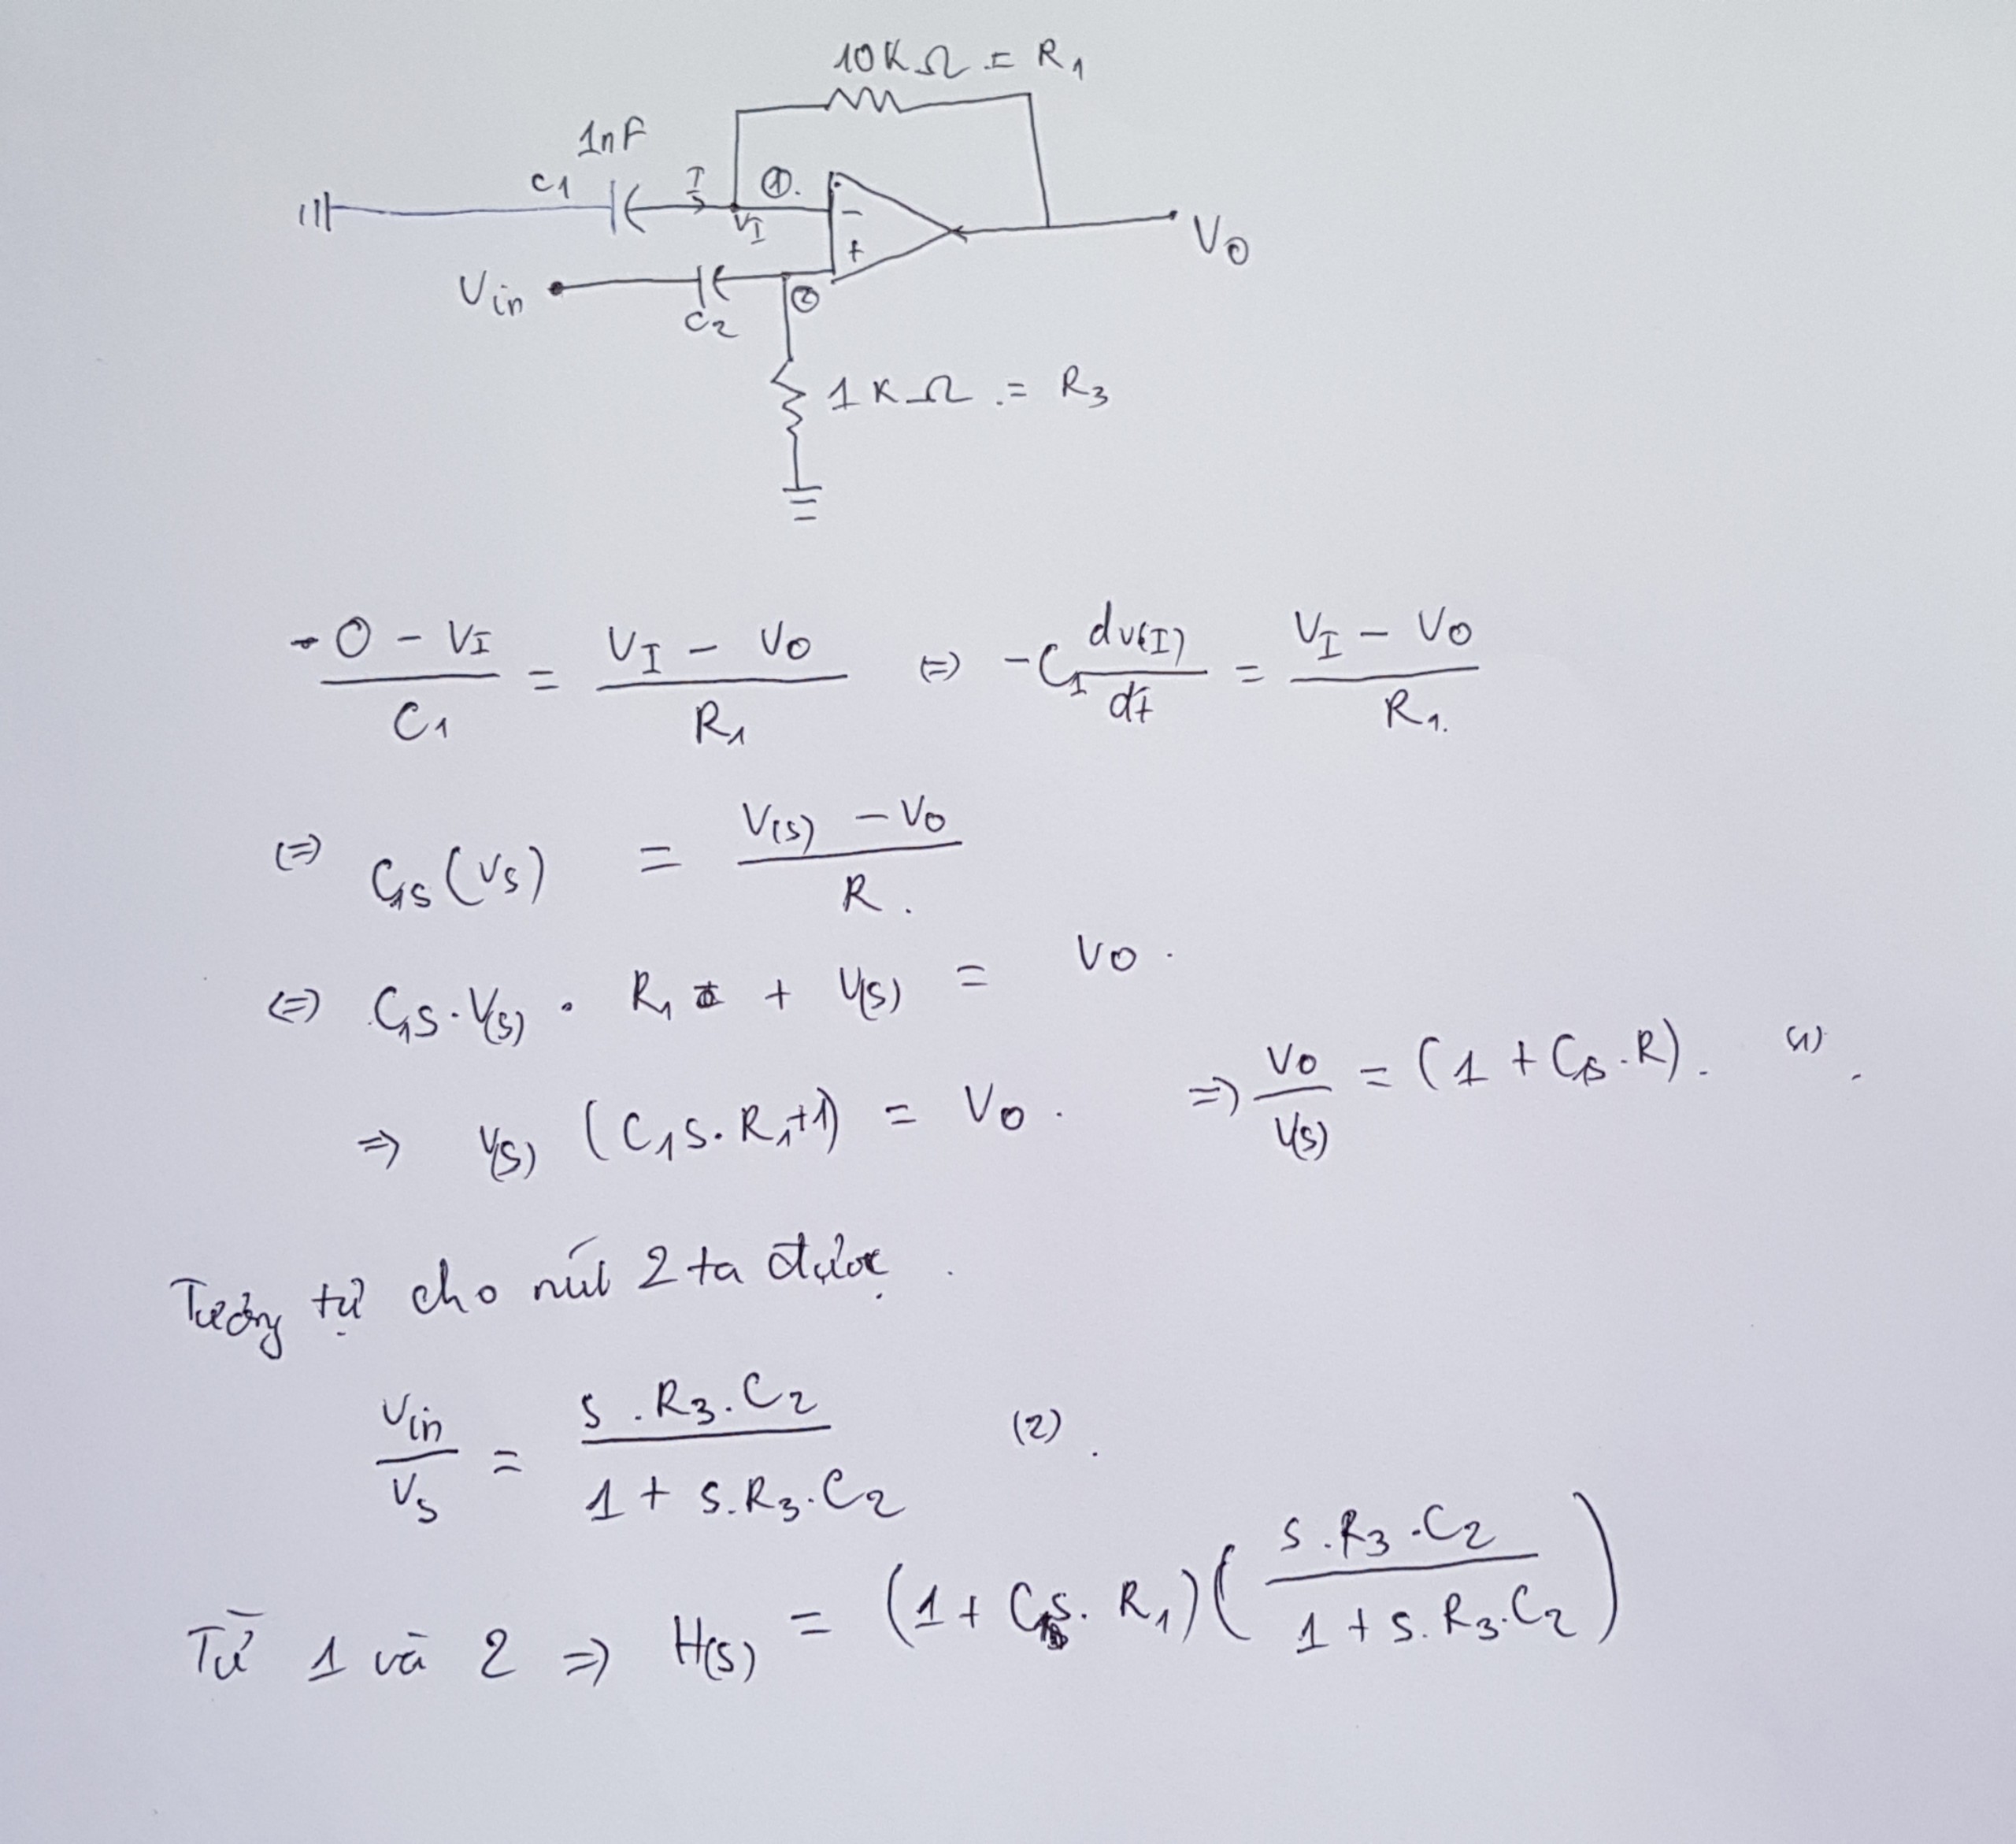 10KΩ = R1
1nF
C1 I ①.
VI
−
+
Vo
Vin
C2 ②
1KΩ .= R3
-0 - VI / C1 = VI - Vo / R1 (=) -C1 dv(I) / dt = VI - Vo / R1.
(=) C1s(Vs) = V(s) - Vo / R.
(=) C1s.V(s) . R1 + V(s) = Vo.
=> V(s) (C1s.R1+1) = Vo. => Vo / V(s) = (1 + C1s.R). (1).
Tương tự cho nút 2 ta được.
Vin / Vs = s.R3.C2 / 1 + s.R3.C2 (2).
Từ 1 và 2 => H(s) = (1 + C1s.R1)(s.R3.C2 / 1 + s.R3.C2)